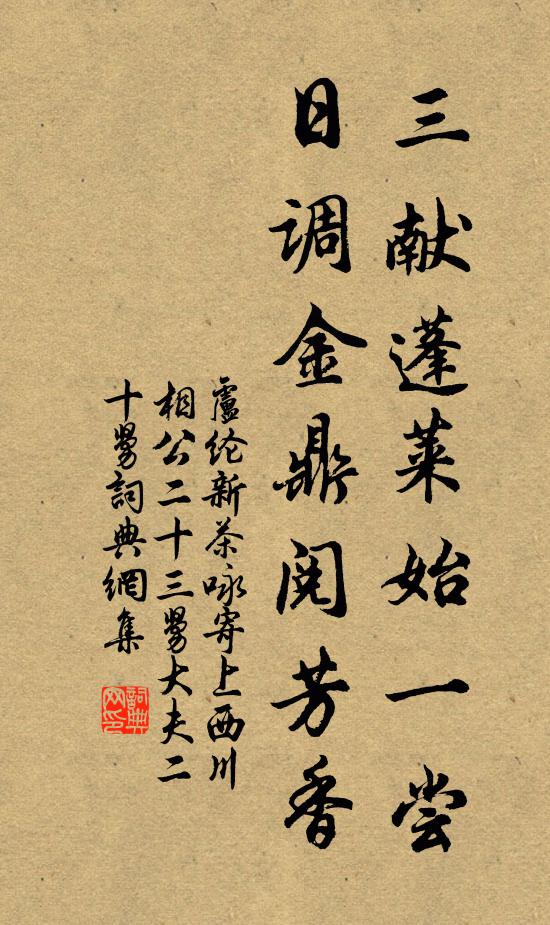 三献蓬莱始一尝
日调金鼎阅芳香
盧纶新茶咏寄上西川
相公二十三舅大夫二
十舅詞典網集
詞典
网印